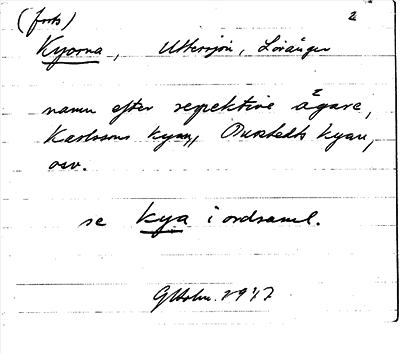 (forts) 2
Kyorna, Uttersjön, Lövånger
namn efter repektive ägare,
Karlssons kyan, kyan,
osv.
se kya i ordsaml.
GHolm. 1947